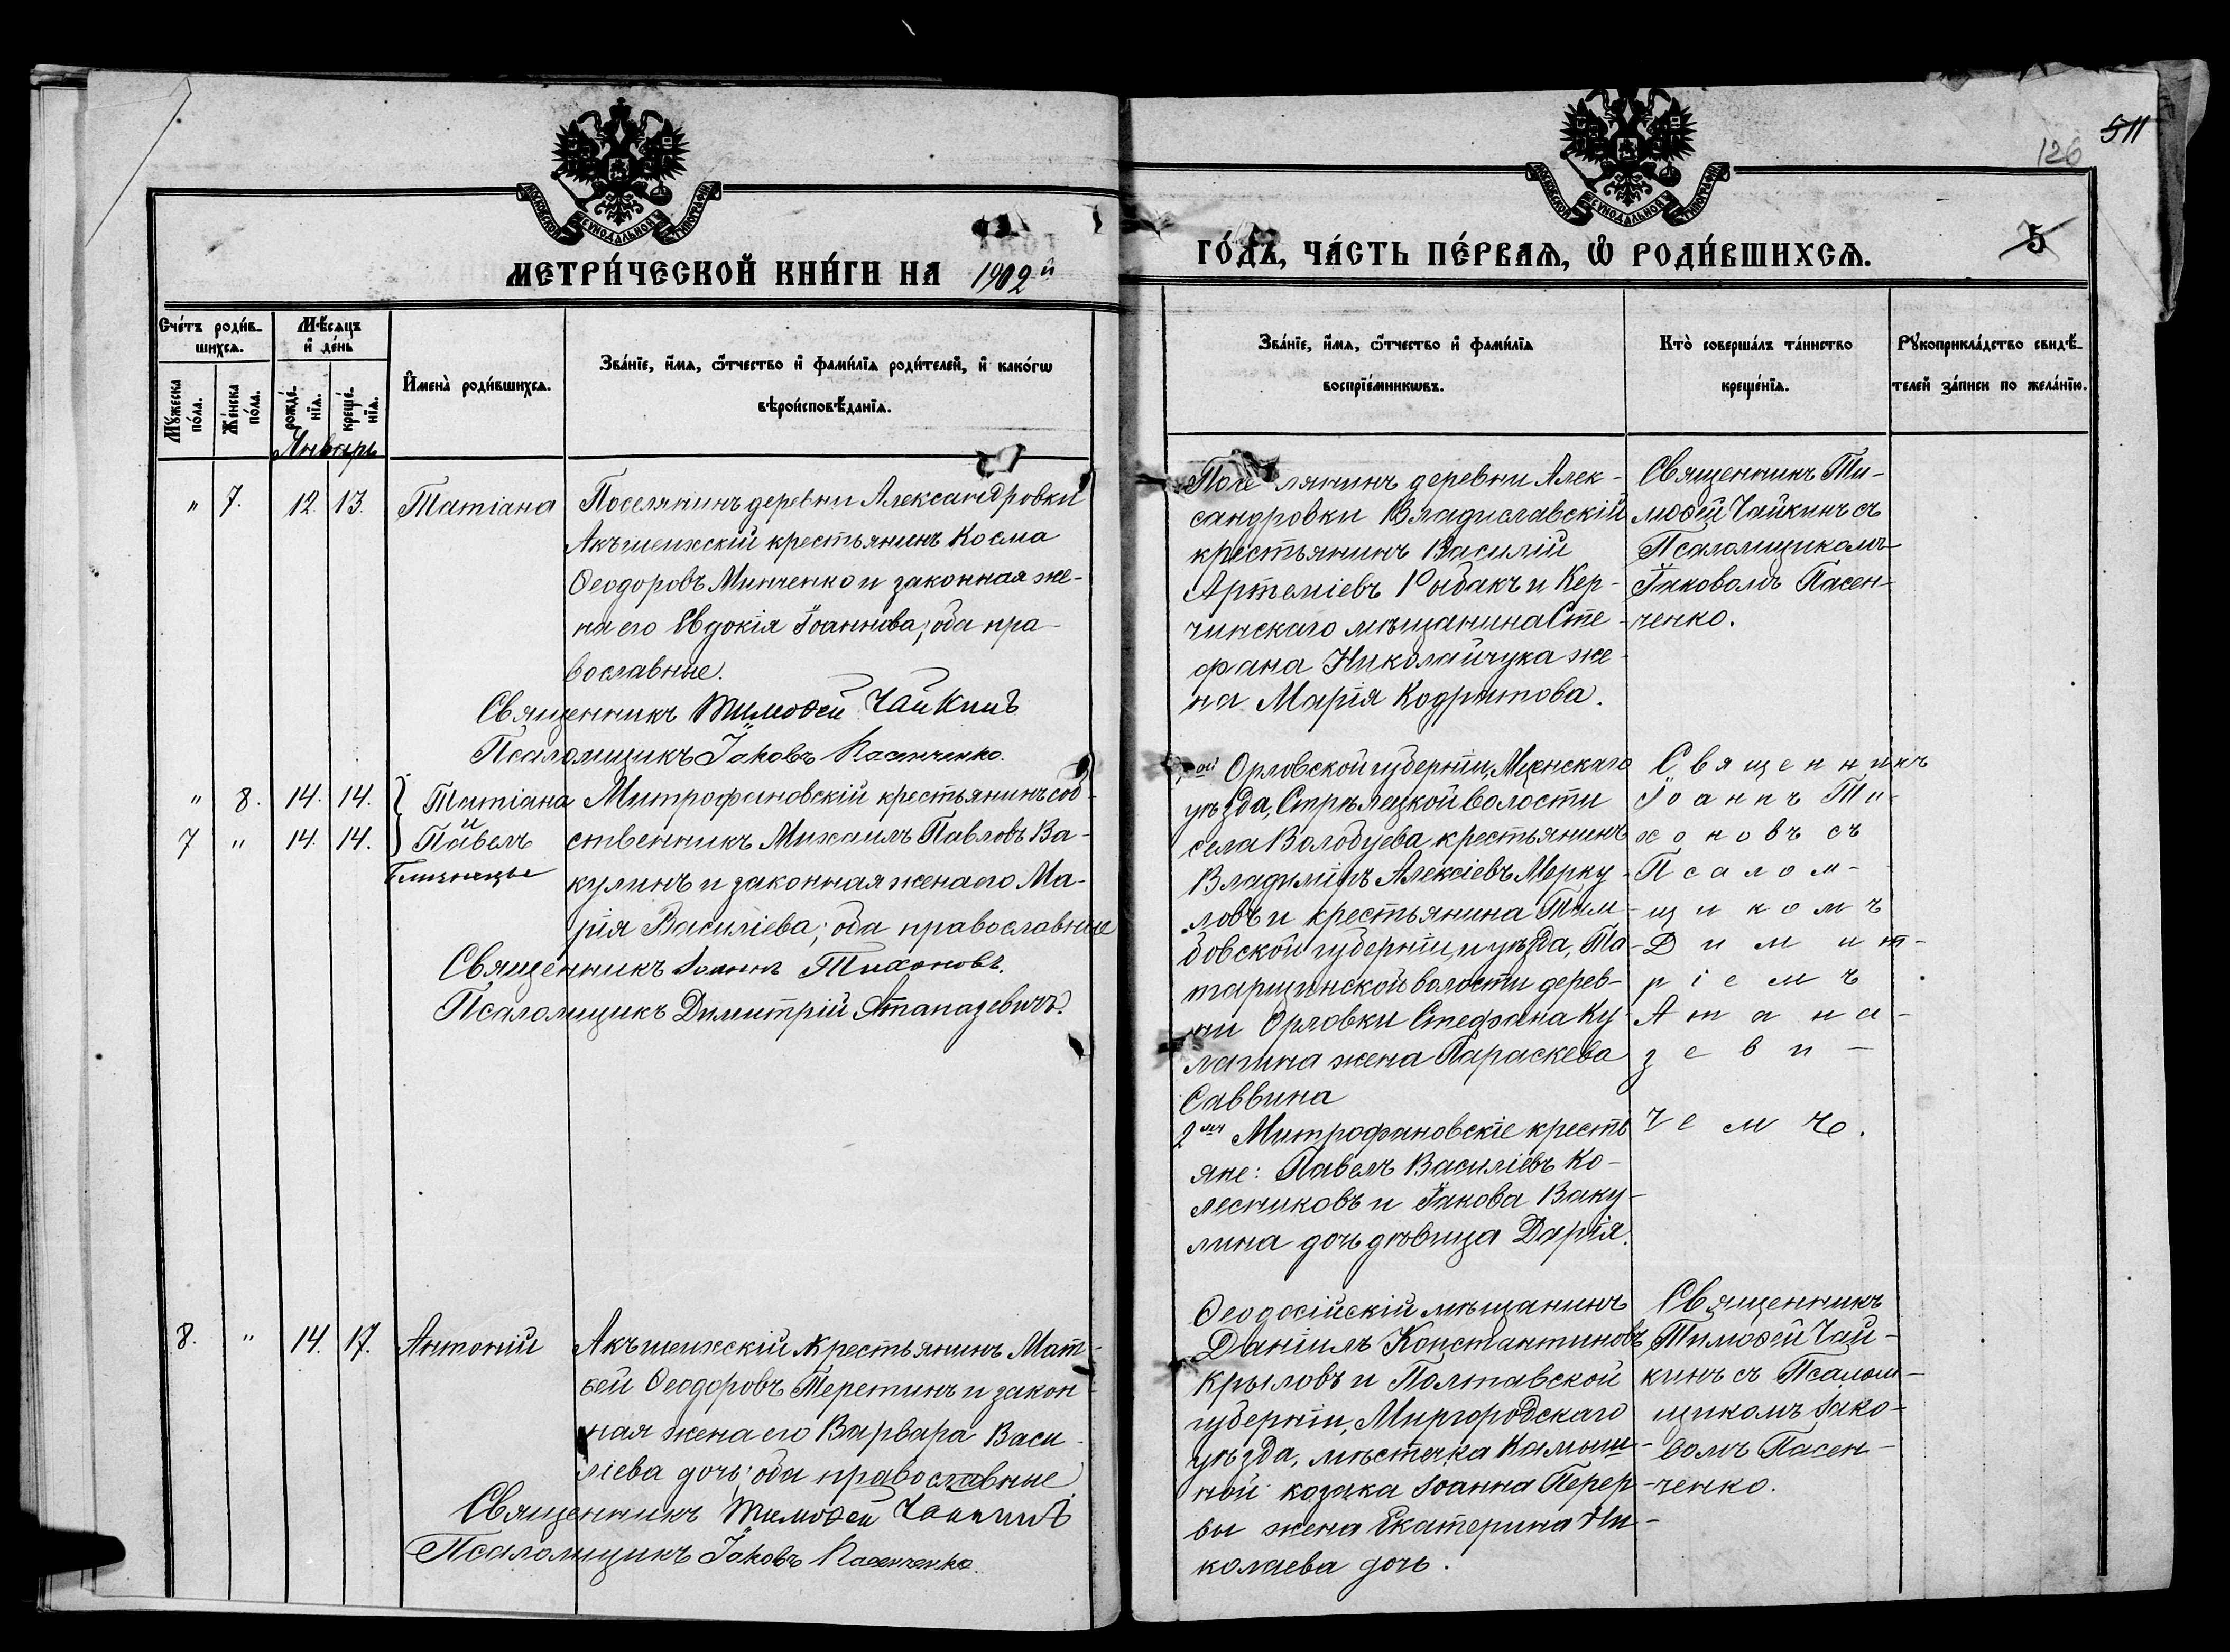 511
126
5
МОСКОВСКОЙ СѴНОДАЛЬНОЙ ТИПОГРАФІИ
МОСКОВСКОЙ СѴНОДАЛЬНОЙ ТИПОГРАФІИ
МЕТРИ́ЧЕСКОЙ КНИ́ГИ НА 1902й
ГО́ДЪ, ЧА́СТЬ ПЕ́РВАѦ, Ѽ РОДИ́ВШИХСѦ.
Сче́тъ роди́в-
шихсѧ.
Мꙋ́жеска по́ла.
Же́нска по́ла.
Мѣ́сѧцъ
и҆ де́нь
рожде́-
нїѧ.
креще́-
нїѧ.
Январь
И҆мена̀ роди́вшихсѧ.
Зва́нїе, и҆́мѧ, ѻ҆́тчество и҆ фами́лїѧ роди́телей, и҆ како́гѡ
вѣроисповѣ́данїѧ.
Зва́нїе, и҆́мѧ, ѻ҆́тчество и҆ фами́лїѧ
воспрїе́мникѡвъ.
Кто̀ соверша́лъ та́инство
креще́нїѧ.
Рꙋкоприкла́дство свидѣ́-
телей за́писи по жела́нїю.
" 7. 12. 13. Татіана
Поселянинъ деревни Александровки
Акъшеихскій крестьянинъ Косма
Ѳеодоровъ Минченко и законная же-
на его Евдокія Іоаннова; оба пра-
вославные.
Священникъ Тимоѳей Чайкинъ
Псаломщикъ Іаковъ Пасенченко.
Поселянинъ деревни Алек-
сандровки Владиславскій
крестьянинъ Василій
Артеміевъ Рыбакъ и Кер-
чинскаго мѣщанина Сте-
фана Николайчука же-
на Марія Кодратова.
Священникъ Ти-
моѳей Чайкинъ съ
Псаломщикомъ
Іаковомъ Пасен-
ченко.
" 8. 14. 14. Татіана
и
7 " 14. 14. Павелъ
Близнецы
Митрофановскій крестьянинъ соб-
ственникъ Михаилъ Павловъ Ва-
кулинъ и законная жена его Ма-
рія Василіева; оба православные
Священникъ Іоаннъ Тихоновъ.
Псаломщикъ Димитрій Атаназевичъ.
1ой Орловской губерніи, Мценскаго
уѣзда, Стрѣлецкой волости
села Волобуева крестьянинъ
Владиміръ Алексіевъ Мерку-
ловъ и крестьянина Там-
бовской губерніи, и уѣзда, Та-
тарщинской волости дерев-
ни Орловки Стефана Ку-
лагина жена Параскева
Саввина
2ой Митрофановскіе кресть
яне: Павелъ Василіевъ Ко-
лесниковъ и Іакова Ваку-
лина дочь дѣвица Дарія.
Священникъ
Іоаннъ Ти-
хоновъ съ
Псалом-
щикомъ
Димит-
ріемъ
Атана-
зеви-
чемъ.
8. " 14. 17. Антоній
Акъшеихскій крестьянинъ Мат-
ѳей Ѳеодоровъ Теретинъ и закон-
ная жена его Варвара Васи-
ліева дочь; оба православные
Священникъ Тимоѳей Чайкинъ
Псаломщикъ Іаковъ Пасенченко.
Ѳеодосійскій мѣщанинъ
Даніилъ Константиновъ
Крыловъ и Полтавской
губерніи, Миргородскаго
уѣзда, мѣстечка Камыш-
ной козака Іоанна Перер-
вы жена Екатерина Ни-
колаева дочь.
Священникъ
Тимоѳей Чай-
кинъ съ Псалом-
щикомъ Іако-
вомъ Пасен-
ченко.